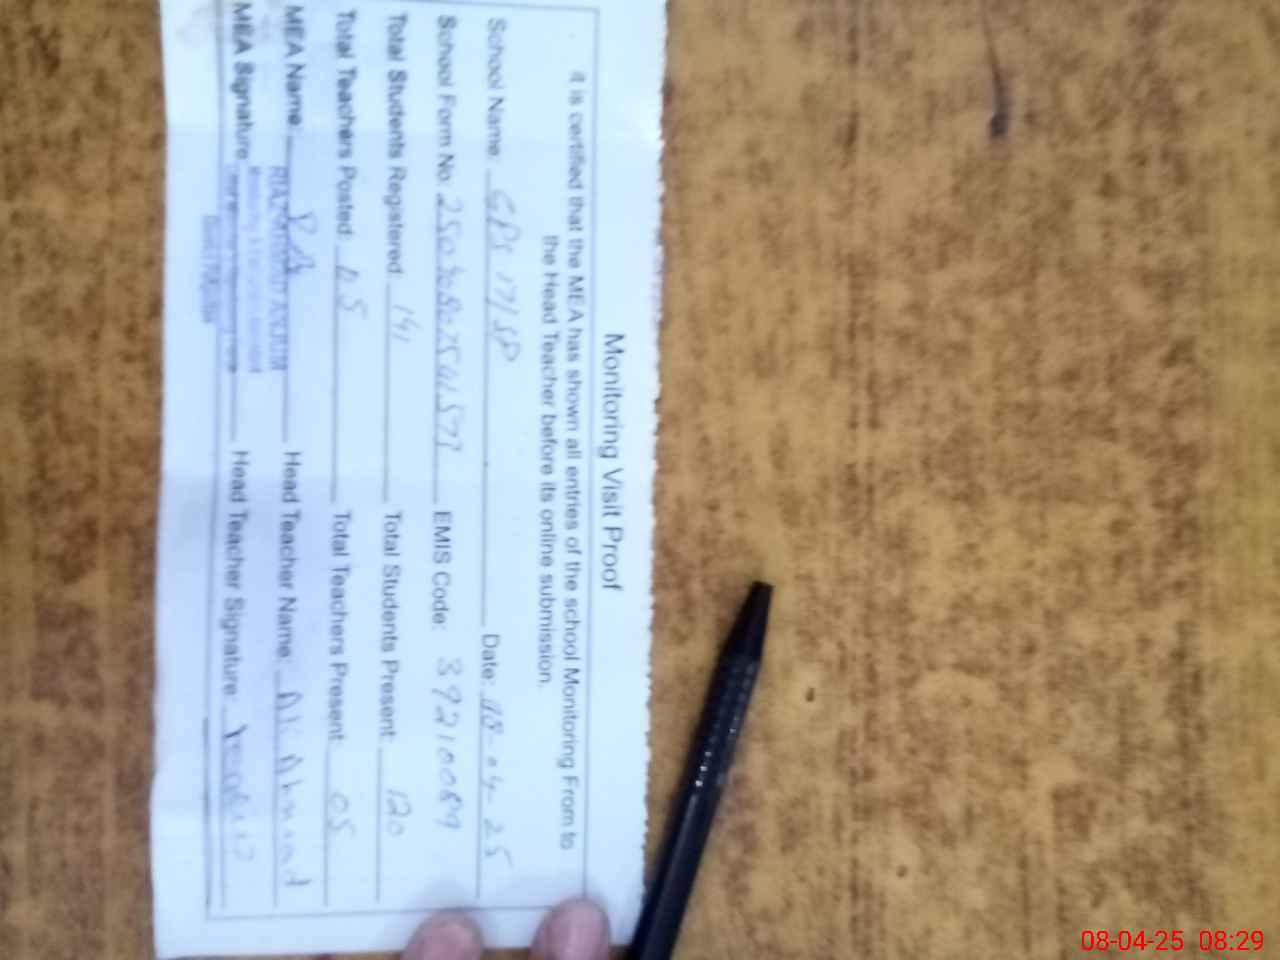 Monitoring Visit Proof
it is certified that the MEA has shown all entries of the school Monitoring From to
the Head Teacher before its online submission.
School Name: GPS 171 SP Date: 08-04-25
School Form No. EMIS Code: 39210089
Total Students Registered 141 Total Students Present 120
Total Teachers Posted: 05 Total Teachers Present 05
MEA Name: Head Teacher Name: Ali Ahmad
MEA Signature Head Teacher Signature:
08-04-25 08:29